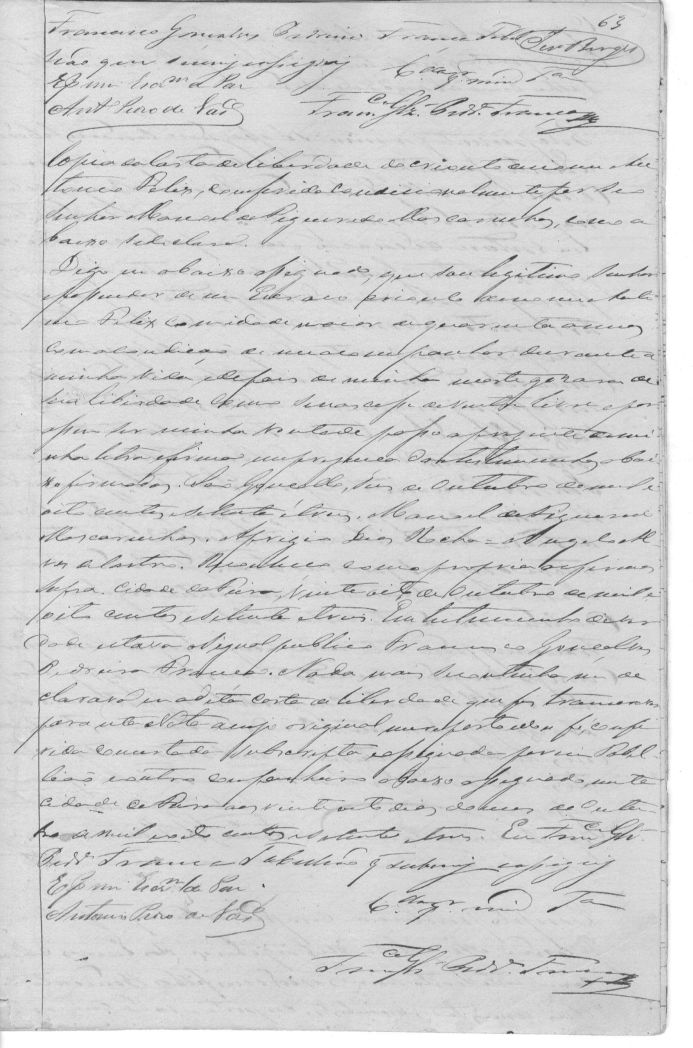 63
Francisco Gonçalves Pedreira França Tabel
lião que subscrevy e assigney
E p mim Escrm de Paz
Antº Pedro de
Franco Glz Pedra França
Copia da Carta de liberdade do crioulo de nome An
tonio Feliz, conferida condicionalmente por seo
Senhor Manoel de Figueiredo Mascarenhas, como a
baixo se declara.
Digo eu abaixo assignado, que sou legitimo Senhor
e possuidor de um Escravo crioulo de nome Anto
nio Feliz com idade maior de quarenta annos
com a condição de me acompanhar durante a
minha vida, e depois de minha morte gozará de
sua liberdade como se nascesse de ventre livre e por
ser minha vontade passo a presente de mi
nha letra e firma em presença das testemunhas abai
xo firmadas. São Gonçalo, tres de Outubro de mil e
oito centos e setenta e tres. Manoel de Figueiredo
Mascarenhas. Aprigio Dias Rocha = Angelo Al
ves de Castro. Reconheço como propria a firma
supra. Cidade da Feira, vinte oito de Outubro de mil e
oito centos e setenta e tres. Em testemunho de ver
dade estava o signal publico Francisco Gonçalves
Pedreira França. Nada mais se continha nem de
clarava em a dita carta de liberdade que foi transcripta
para esta Nota a cujo original me reporto e dou fé, confe
rida concertada subscripta e assignada por mim Tabel
lião e outro companheiro abaixo assignado, nesta
cidade da Feira aos vinte oito dias do mes de Outu
bro de mil e oito centos e setenta e tres. Eu Franco Glz
Pedra França Tabellião q subscrevy e assigney
E p mim Escrm de Paz
Antonio Pedro de
Franco Glz Pedra França